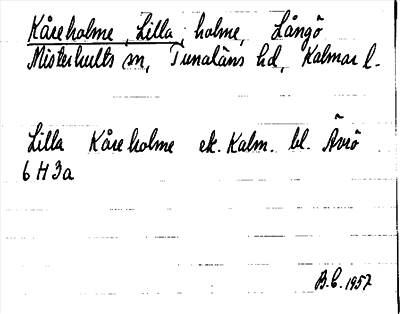 Kåreholme, Lilla, holme, Långö
Misterhults sn, Tunaläns hd, Kalmar l.
Lilla Kåreholme ek. Kalm. bl. Ävrö
6 H 3a
B.E. 1957